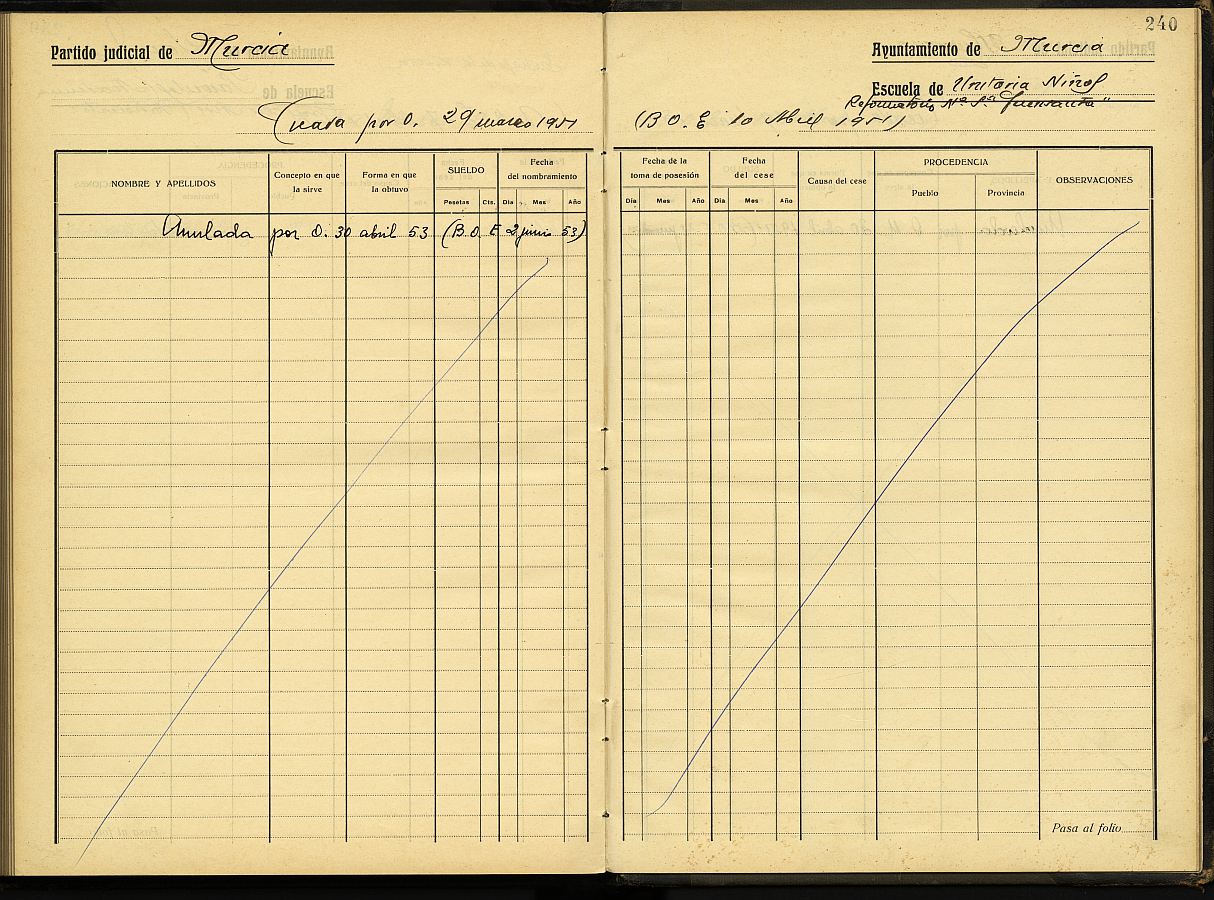 240
Partido judicial de Murcia
Creada por O. 29 marzo 1951
NOMBRE Y APELLIDOS
Concepto en que la sirve
Forma en que la obtuvo
SUELDO
Pesetas Cts.
Fecha del nombramiento
Dia Mes Año
Anulada por O. 30 abril 53 (B O E 2 junio 53)
Ayuntamiento de Murcia
Escuela de Unitaria Niños
Reformatorio Nª Sª Fuensanta"
(B O. E 10 Abril 1951)
Fecha de la toma de posesión
Dia Mes Año
Fecha del cese
Dia Mes Año
Causa del cese
PROCEDENCIA
Pueblo Provincia
OBSERVACIONES
Pasa al folio